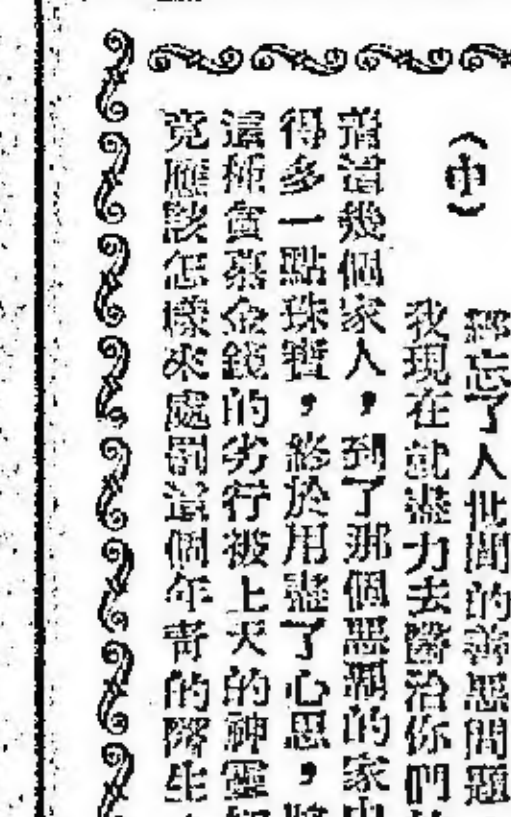 (中)
經忘了人世間的善惡問題
我現在就盡力去醫治你們
着這幾個家人,到了那個惡魔的家中
得多一點珠寶,終於用盡了心思,將
這種貪慕金錢的劣行被上天的神靈
究應該怎樣來處罰這個年青的醫生